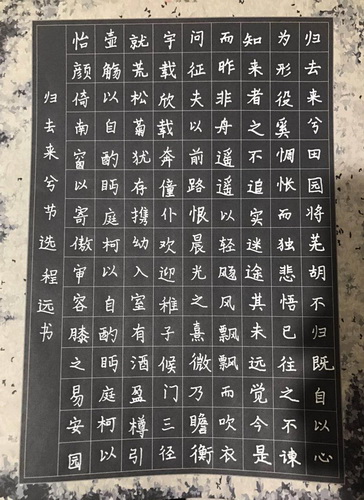 归去来兮田园将芜胡不归既自以心
为形役奚惆怅而独悲悟已往之不谏
知来者之不追实迷途其未远觉今是
而昨非舟遥遥以轻飏风飘飘而吹衣
问征夫以前路恨晨光之熹微乃瞻衡
宇载欣载奔僮仆欢迎稚子候门三径
就荒松菊犹存携幼入室有酒盈樽引
壶觞以自酌眄庭柯以自酌眄庭柯以
怡颜倚南窗以寄傲审容膝之易安园
归去来兮节选程远书